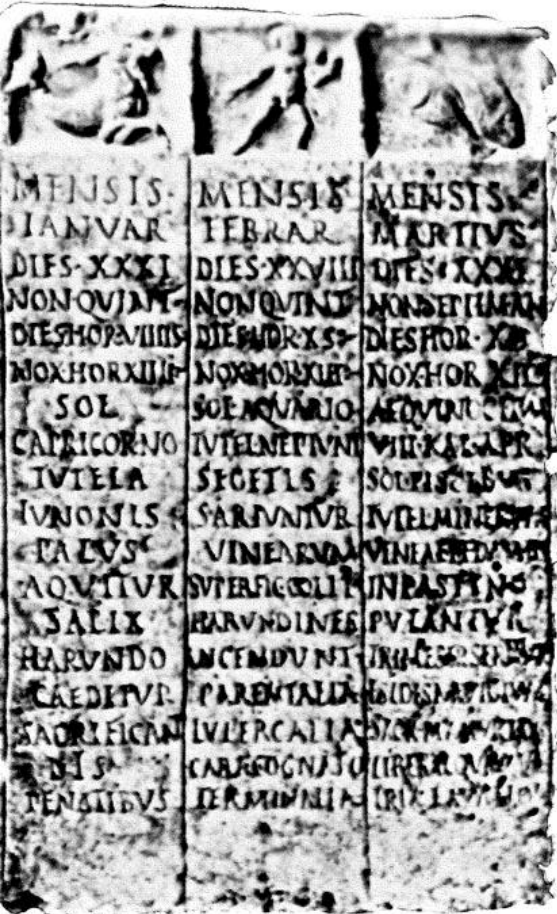 MENSIS·
IANVAR
DIES·XXXI
NON·QVINT
DIES·HOR·VIIIIS
NOX·HOR·XIIII
SOL
CAPRICORNO
TVTELA
IVNONIS
PALVS
AQVITVR
SALIX
HARVNDO
CAEDITVR
SACRIFICAN
DIS
PENATIBVS
MENSIS
FEBRAR
DIES·XXVIII
NON QVINT
DIES HOR·XS
NOX·HOR·XIII
SOL AQVARIO
TVTEL NEPTVNI
SEGETIS
SARIVNTVR
VINEARVM
SVPERFIC COLIT
HARVNDINES
INCENDVNT
PARENTALIA
LVPERCALIA
COGNATIO
TERMINALIA
MENSIS
MARTIVS
DIES XXXI
NON SEPTIMAN
DIES HOR·
NOX·HOR
AEQVINOCTIVM
VIII·KAL·APR
SOL PISCIBVS
TVTEL MINERVAE
VINEAE
IN PASTINO
PVTANTVR
ISIDIS NAVIGIVM